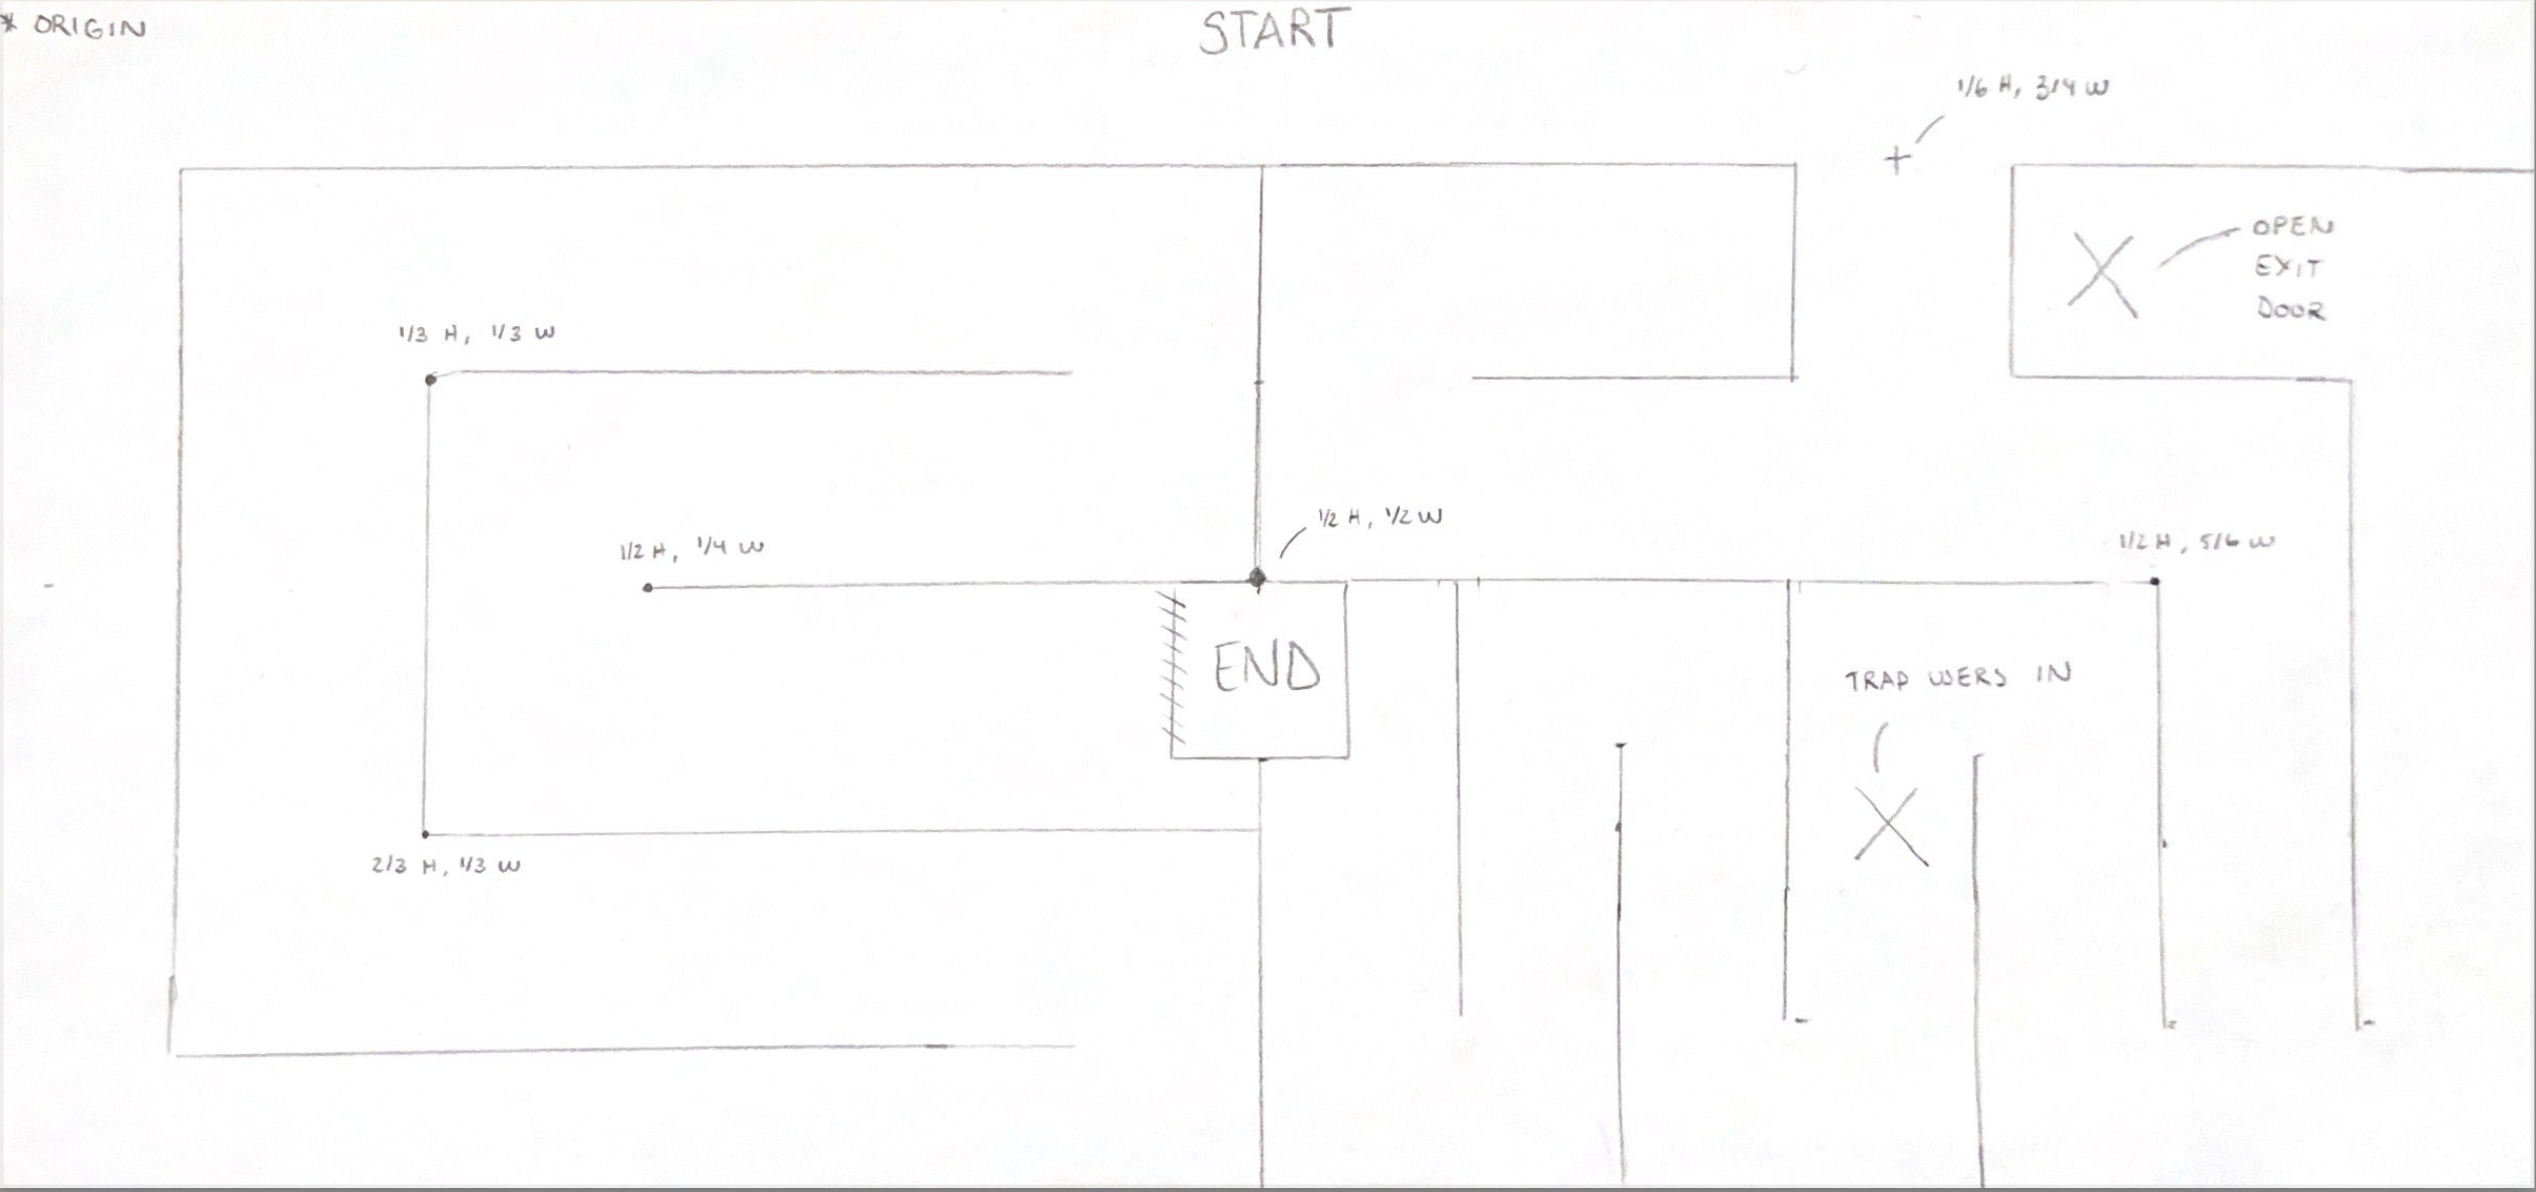 * ORIGIN
START
1/6 H, 3/4 W
OPEN
EXIT
DOOR
1/3 H, 1/3 W
1/2 H, 1/4 W
1/2 H, 1/2 W
1/2 H, 5/6 W
END
TRAP USERS IN
2/3 H, 1/3 W